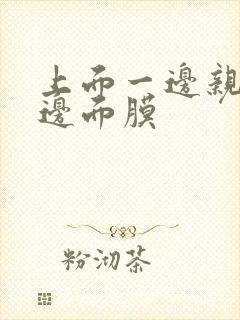 上而一邊親
邊而膜
粉沏茶